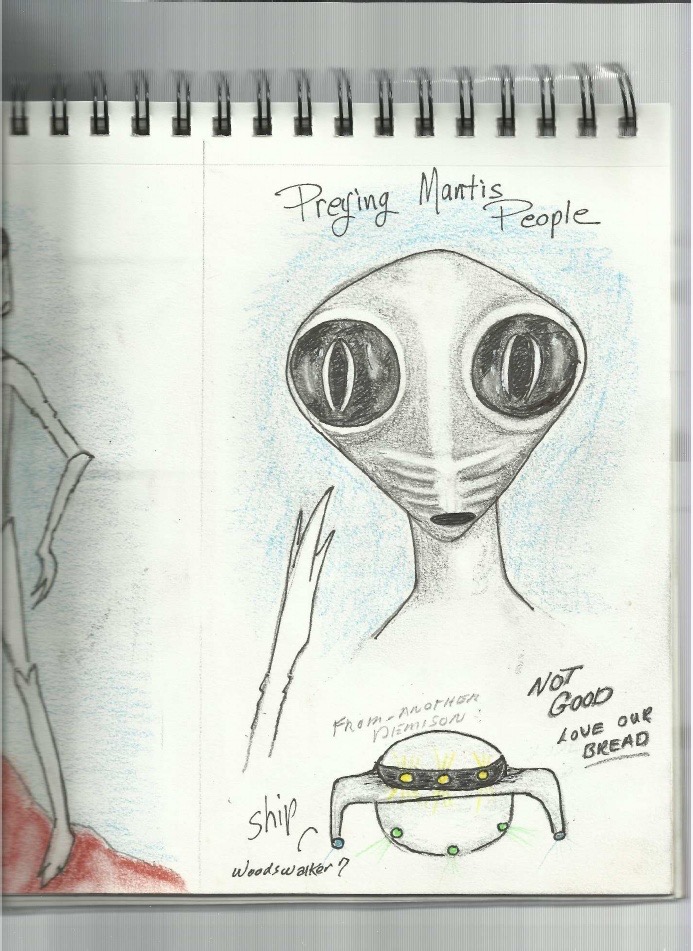 Preying Mantis
People
From-another
Demison:
NOT
GOOD
LOVE OUR
BREAD
Ship
Woodswalker 7